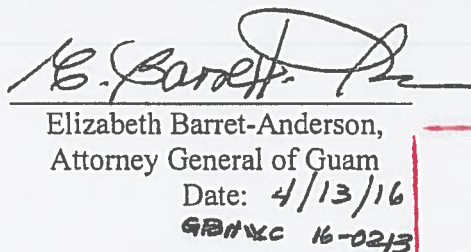 E. Barrett-
Elizabeth Barret-Anderson,
Attorney General of Guam
Date: 4/13/16
16-0213